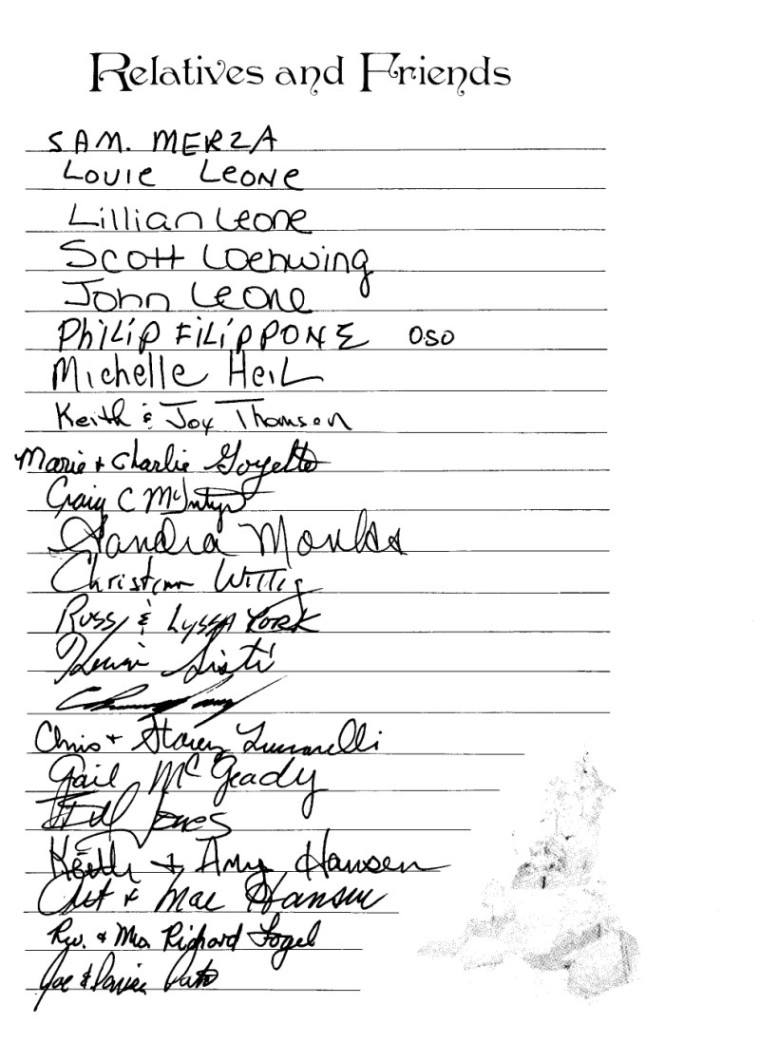 Relatives and Friends
SAM. MERZA
LOUIE LEONE
Lillian Leone
Scott Loehwing
John Leone
PHILIP FILIPPONE OSO
Michelle HeiL
Keith & Joy Thomson
Marie + Charlie Goyette
Craig C McIntyre
Sandra Moulds
Christian Wittig
Russ & Lyssa York
Kevin Sisti
Chris + Stacey
Gail McGeady
Bill Jones
Keith + Amy Hansen
Chet + Mae Hansen
Rev. & Mrs. Richard Fogel
Joe &